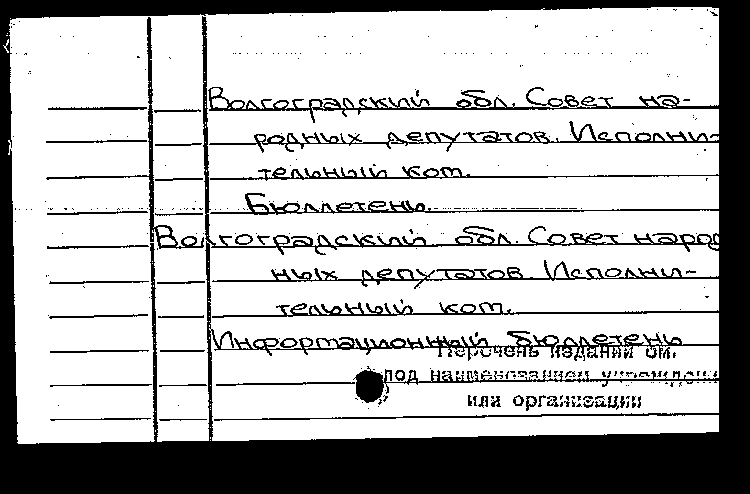 Волгоградский обл. Совет на-
родных депутатов. Исполни-
тельный ком.
Бюллетень.
Волгоградский обл. Совет народ
ных депутатов. Исполни-
тельный ком.
Информационный бюллетень
Перечень изданий см.
под наименованием учрежден
или организации